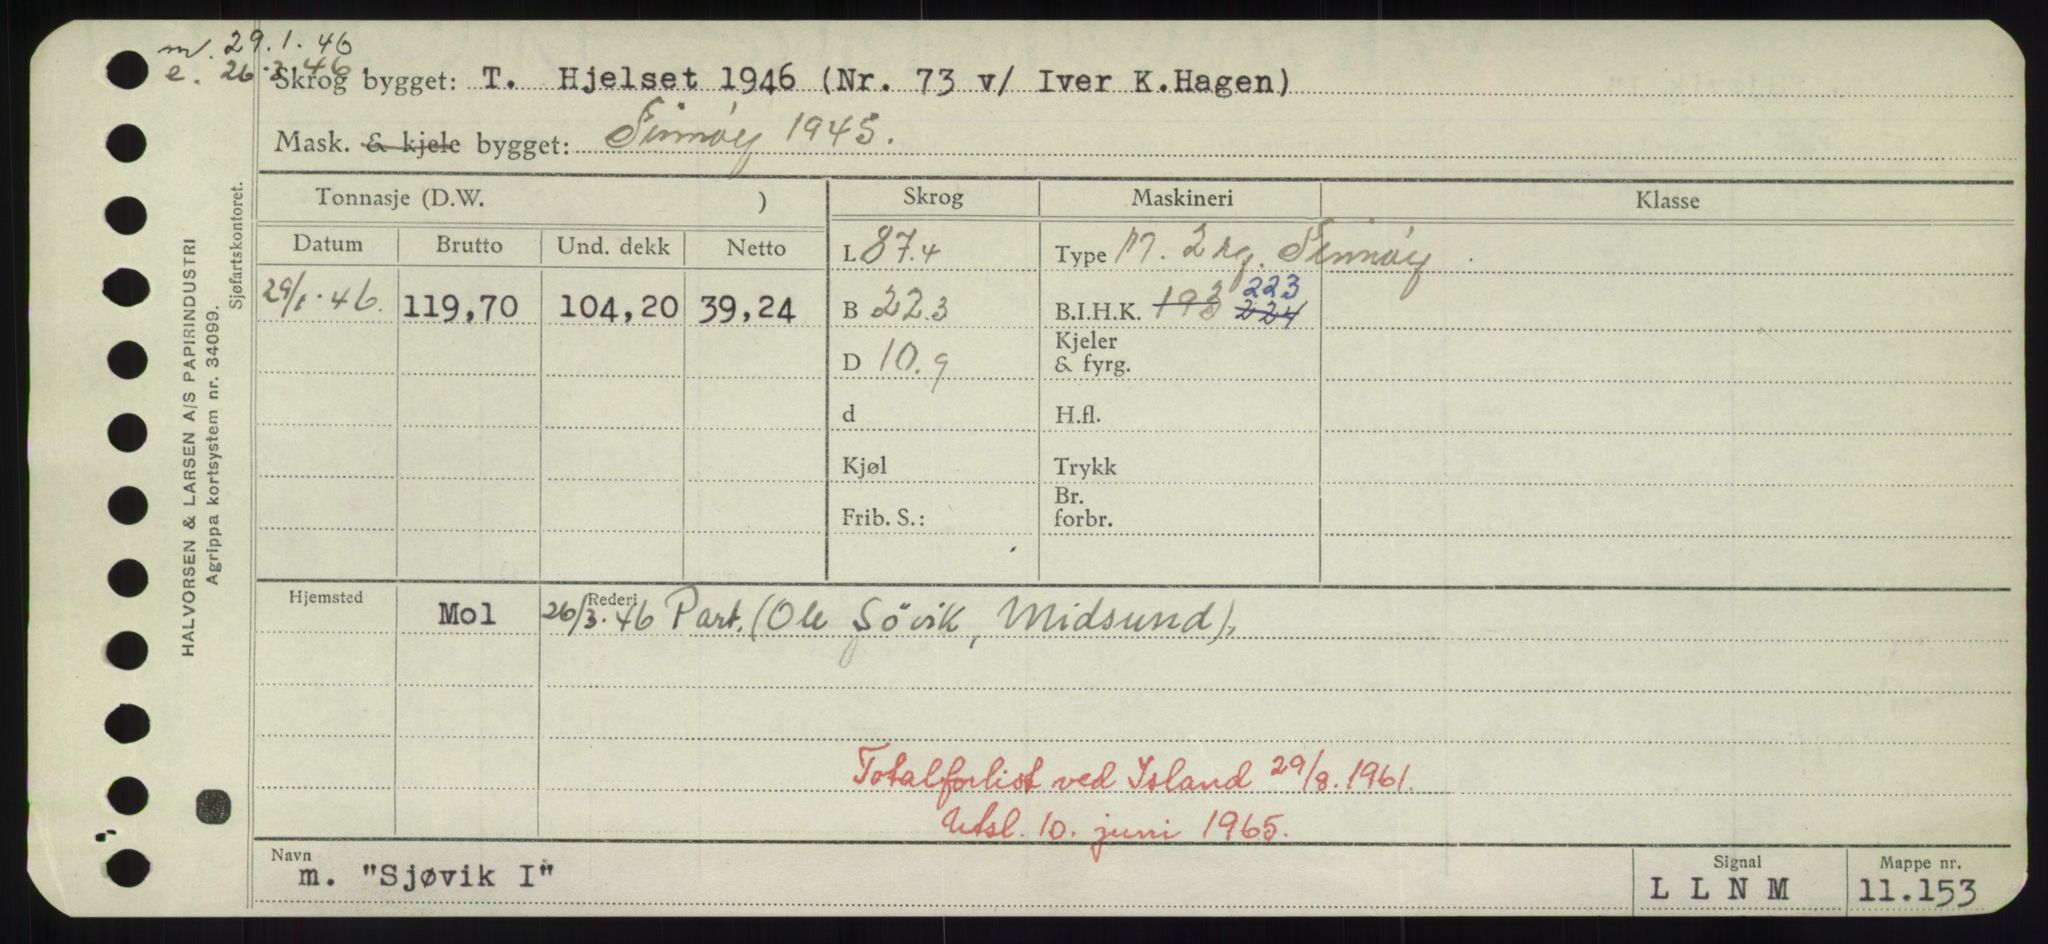 m. 29.1.46
e. 26.3.46.
Skrog bygget: T. Hjelset 1946 (Nr. 73 v/ Iver K.Hagen)
Mask. & kjele bygget: Finnøy 1945.
Tonnasje (D.W. ) Skrog Maskineri Klasse
Datum Brutto Und. dekk Netto
L 87.4 Type M. 2 sg. Finnøy
29/1.46. 119,70 104,20 39,24
B 22.3 B.I.H.K. 193 224 223
D 10.9 Kjeler & fyrg.
d H.fl.
Kjøl Trykk
Frib. S.: Br. forbr.
Hjemsted Mol Rederi 26/3.46 Part. (Ole Sövik, Midsund),
Totalforlist ved Island 29/8.1961.
Utsl. 10. juni 1965.
Navn Signal Mappe nr.
m. "Sjøvik I" L L N M 11.153
HALVORSEN & LARSEN A/S PAPIRINDUSTRI
Agrippa kortsystem nr. 34099.
Sjøfartskontoret.